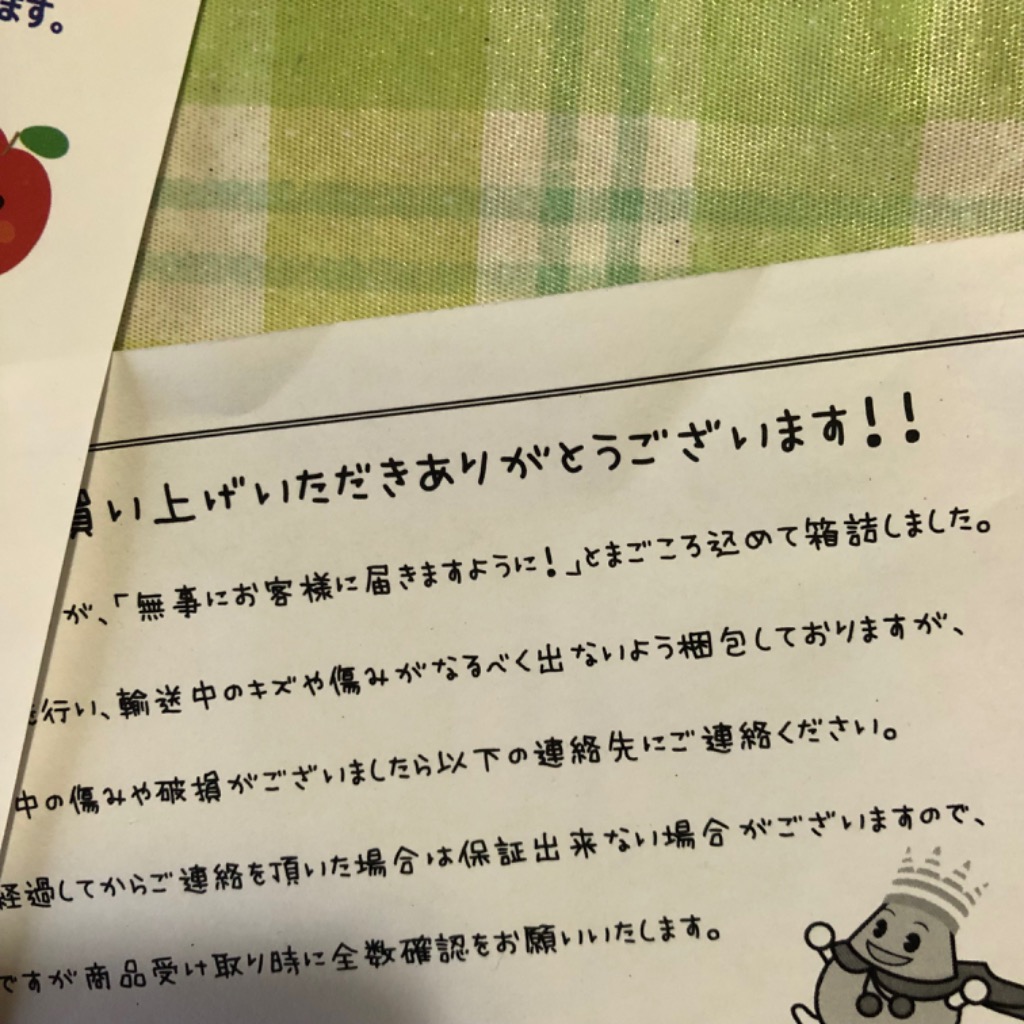 ます。
買い上げいただきありがとうございます!!
が、「無事にお客様に届きますように!」とまごころ込めて箱詰しました。
行い、輸送中のキズや傷みがなるべく出ないよう梱包しておりますが、
中の傷みや破損がございましたら以下の連絡先にご連絡ください。
経過してからご連絡を頂いた場合は保証出来ない場合がございますので、
ですが商品受け取り時に全数確認をお願いいたします。